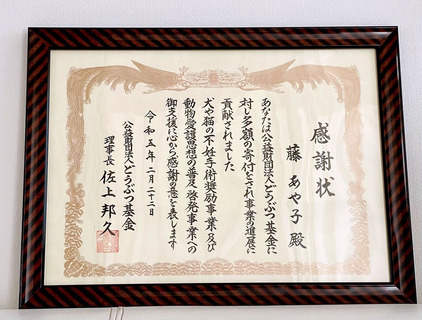 感謝状
藤 あや子 殿
あなたは公益財団法人どうぶつ基金に
対し多額の寄付をされ事業の進展に
貢献されました
犬や猫の不妊手術奨励事業及び
動物愛護思想の普及啓発事業への
御支援に心から感謝の意を表します
令和五年二月二十二日
公益財団法人どうぶつ基金
理事長 佐上邦久